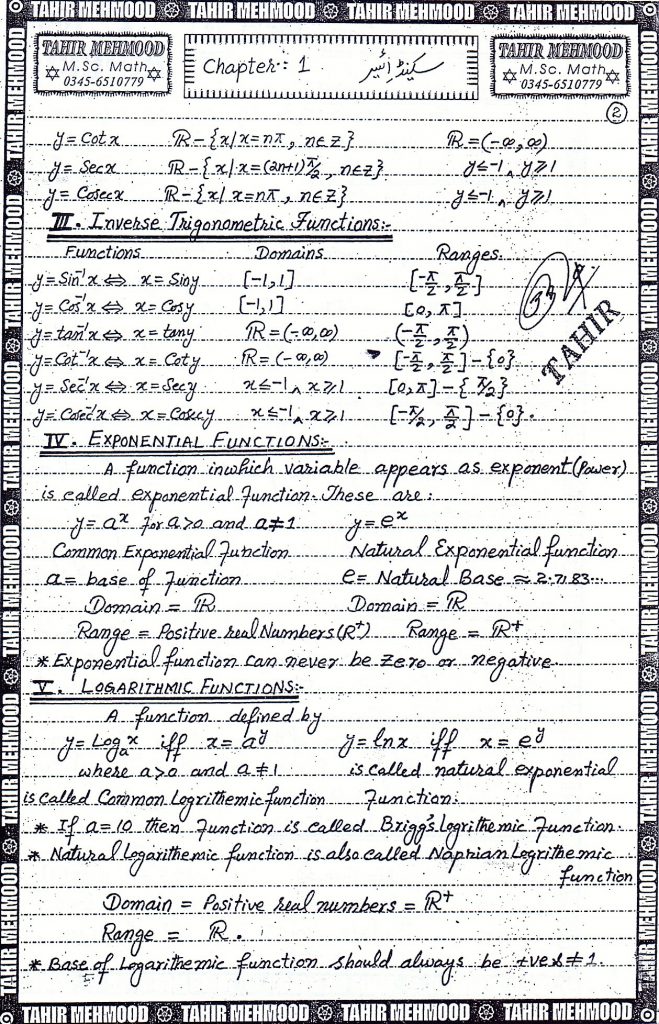 TAHIR MEHMOOD TAHIR MEHMOOD TAHIR MEHMOOD TAHIR MEHMOOD
TAHIR MEHMOOD
M.Sc. Math
0345-6510779
Chapter:: 1 سیکنڈ ائیر
TAHIR MEHMOOD
M.Sc. Math
0345-6510779
2
y = Cotx ℝ-{x|x=nπ, n∈z} ℝ=(-∞,∞)
y = Secx ℝ-{x|x=(2n+1)π/2, n∈z} y≤-1 ∧ y≥1
y = Cosecx ℝ-{x|x=nπ, n∈z} y≤-1 ∧ y≥1
III. Inverse Trigonometric Functions:-
Functions Domains Ranges
y=Sin⁻¹x ⇔ x=Siny [-1,1] [-π/2, π/2]
y=Cos⁻¹x ⇔ x=Cosy [-1,1] [0, π]
y=tan⁻¹x ⇔ x=tany ℝ=(-∞,∞) (-π/2, π/2)
y=Cot⁻¹x ⇔ x=Coty ℝ=(-∞,∞) [-π/2, π/2]-{0}
y=Sec⁻¹x ⇔ x=Secy x≤-1 ∧ x≥1 [0,π]-{π/2}
y=Cosec⁻¹x ⇔ x=Cosecy x≤-1 ∧ x≥1 [-π/2, π/2]-{0}.
TAHIR
IV. EXPONENTIAL FUNCTIONS:-
A function inwhich variable appears as exponent (Power)
is called exponential Function. These are:
y=aˣ for a>0 and a≠1 y=eˣ
Common Exponential Function Natural Exponential function
a = base of Function e = Natural Base ≈ 2.7183...
Domain = ℝ Domain = ℝ
Range = Positive real Numbers (R⁺) Range = ℝ⁺
* Exponential function can never be Zero or negative.
V. LOGARITHMIC FUNCTIONS:-
A function defined by
y=Logₐx iff x=aʸ y=lnx iff x=eʸ
where a>0 and a≠1 is called natural exponential
is called Common Logrithemic function Function.
* If a=10 then Function is called Brigg's Logrithemic Function
* Natural Logarithemic function is also called Naprian Logrithemic
function
Domain = Positive real numbers = ℝ⁺
Range = ℝ.
* Base of Logarithemic function should always be +ve & ≠1.
TAHIR MEHMOOD TAHIR MEHMOOD TAHIR MEHMOOD TAHIR MEHMOOD